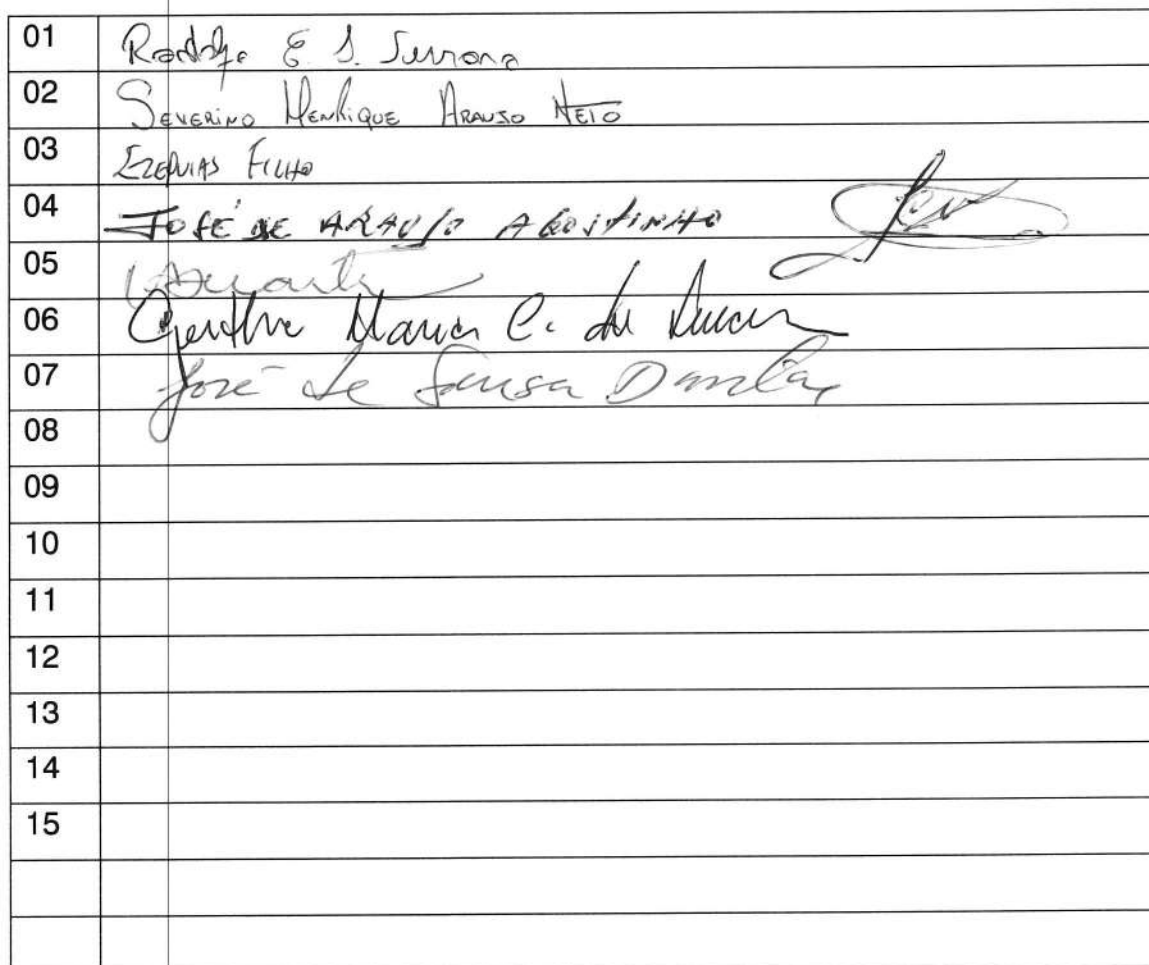 01 Rodolfo E. S. Serrano
02 Severino Henrique Araujo Neto
03 Ezequias Filho
04 José de Araujo Agostinho
05
06 Maria C. de
07 José de Sousa Dantas
08
09
10
11
12
13
14
15